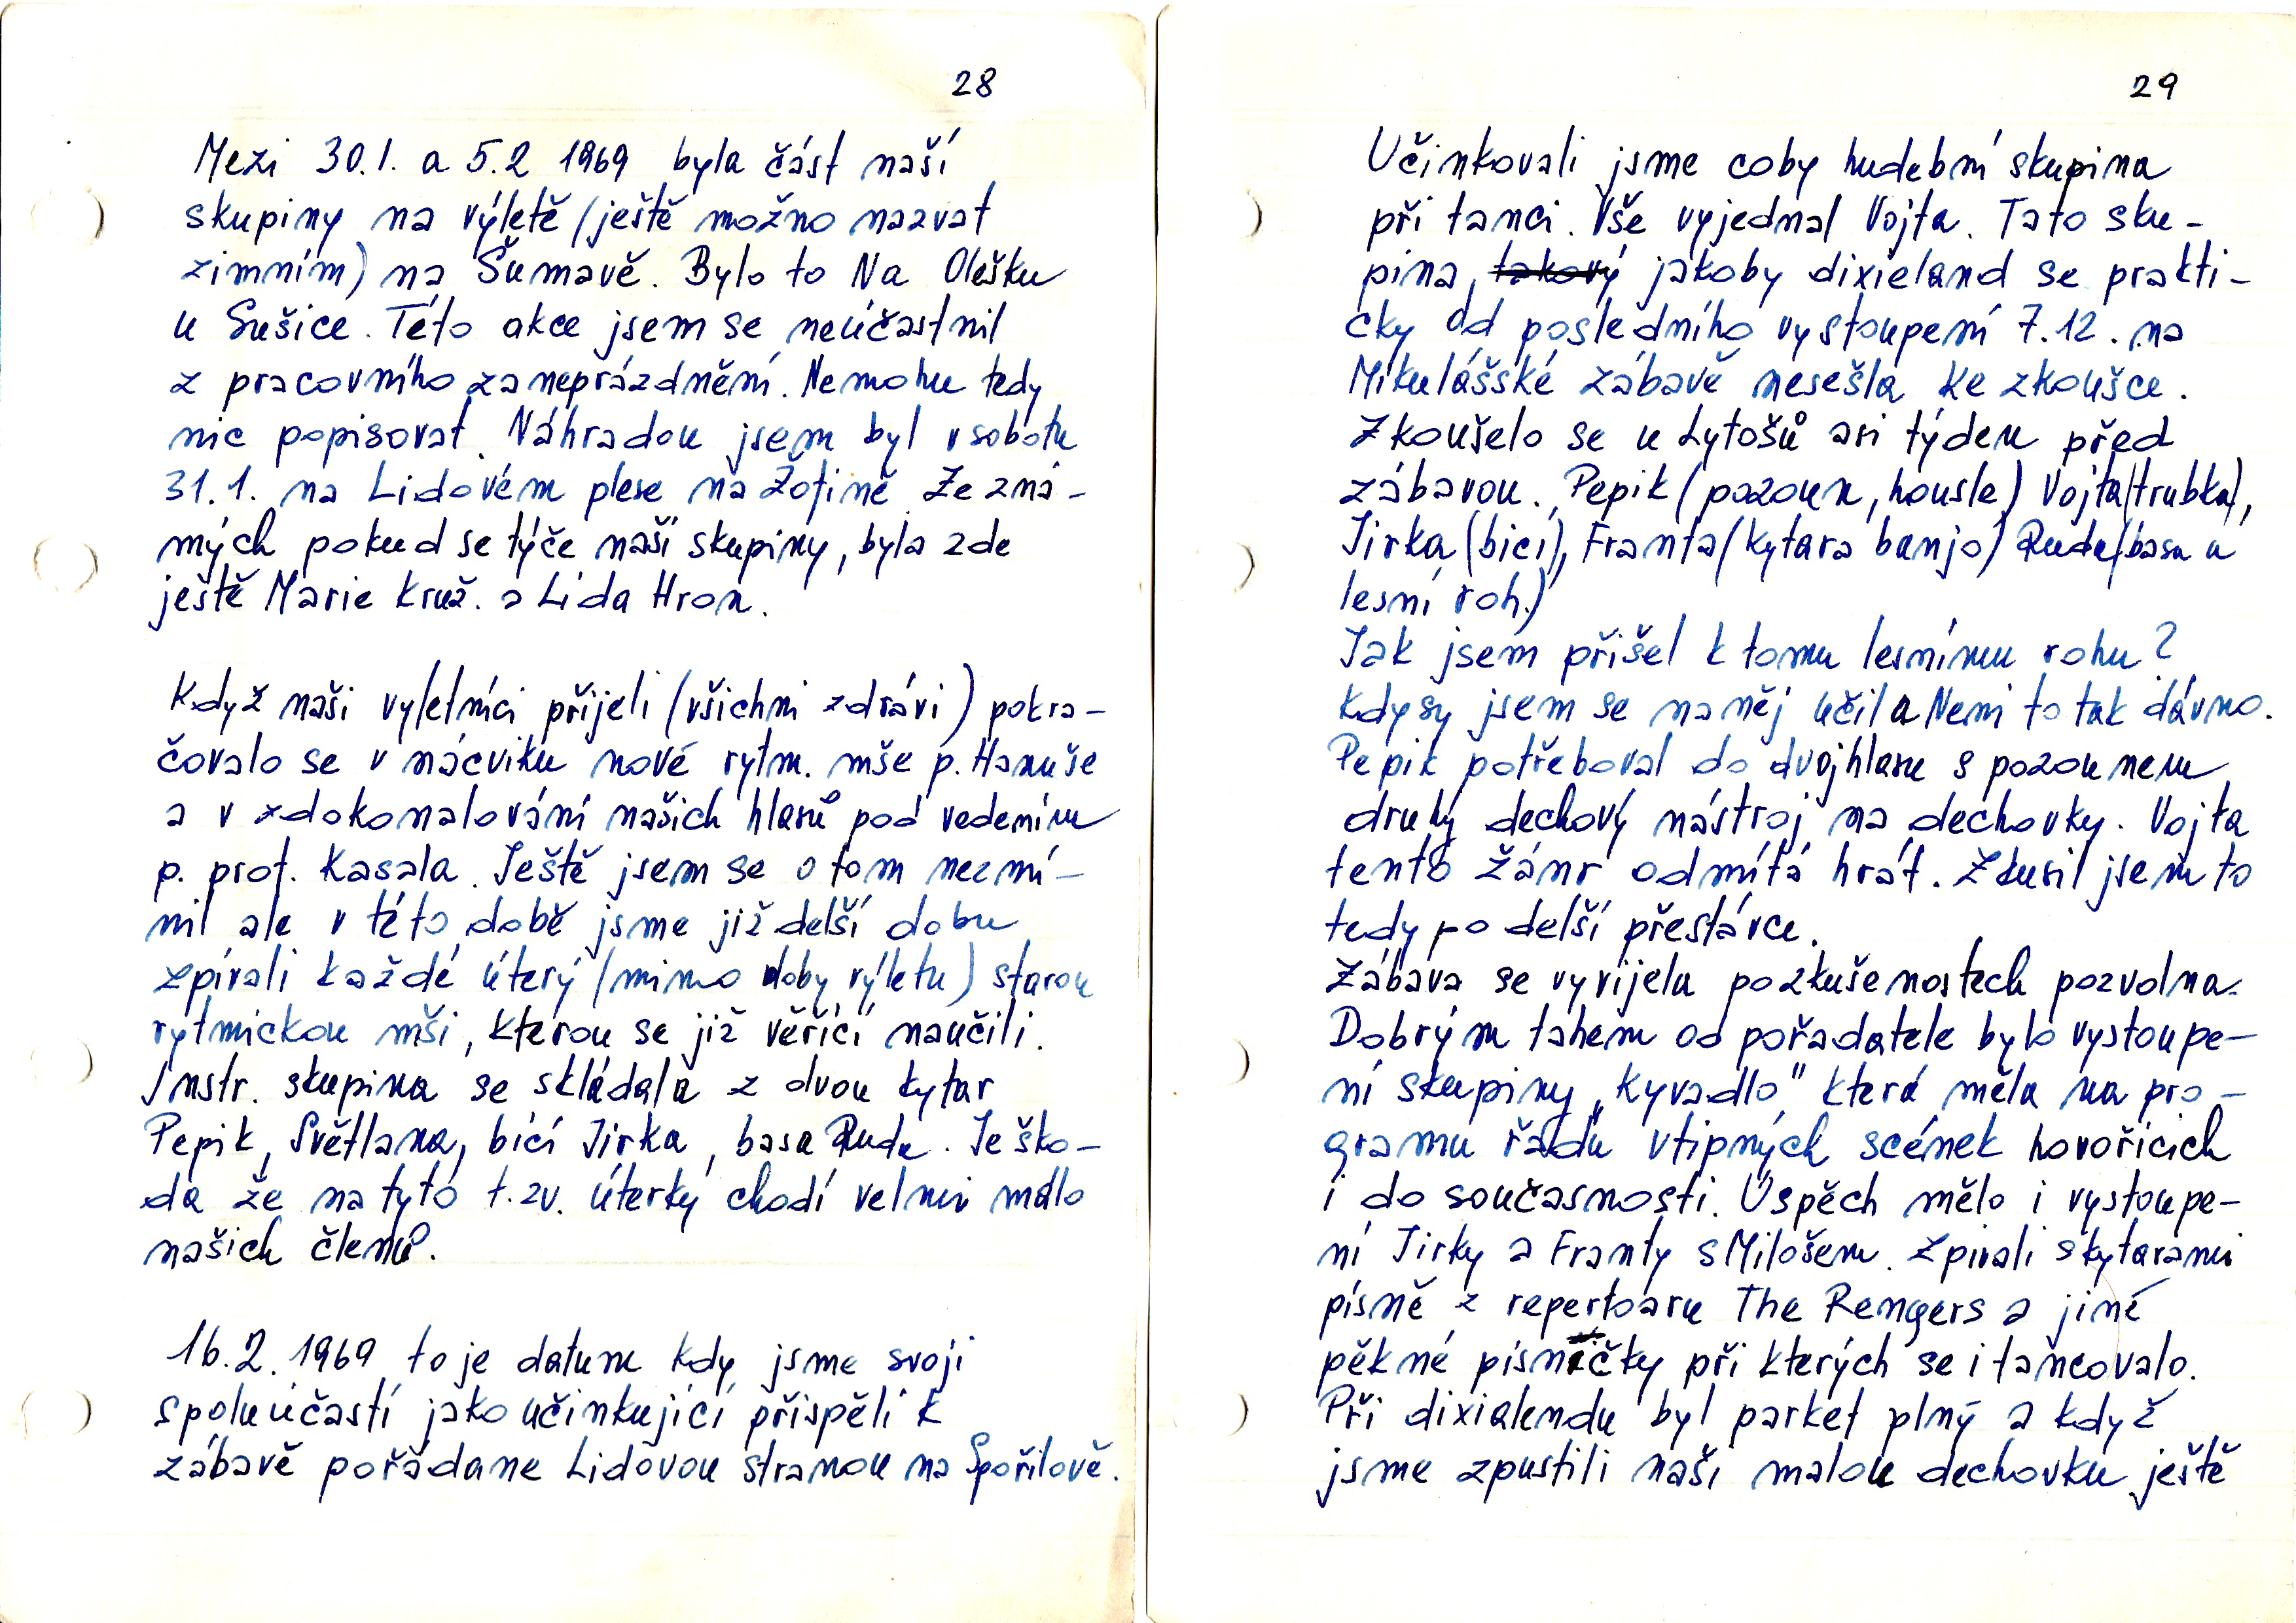 28
Mezi 30.1. a 5.2 1969 byla část naší
skupiny na výletě (ještě možno nazvat
zimním) na Šumavě. Bylo to Na Olešku
u Sušice. Této akce jsem se neúčastnil
z pracovního zaneprázdnění. Nemohu tedy
nic popisovat. Náhradou jsem byl v sobotu
31.1. na Lidovém plese na Žofíně. Ze zná-
mých pokud se týče naší skupiny, byla zde
ještě Marie Kruž. a Lida Hron.
Když naši vyletníci přijeli (všichni zdrávi) pokra-
čovalo se v nácviku nové rytm. mše p. Hanuše
a v zdokonalování našich hlasů pod vedením
p. prof. Kasala. Ještě jsem se o tom nezmí-
nil ale v této době jsme již delší dobu
zpívali každé úterý (mimo doby výletu) starou
rytmickou mši, kterou se již věřící naučili.
Instr. skupina se skládala z dvou kytar
Pepik, Světlana, bicí Jirka, basa Ruda. Je ško-
da že na tyto t.zv. úterky chodí velmi málo
našich členů.
16.2.1969 to je datum kdy jsme svoji
spoluúčastí jako učinkující přispěli k
zábavě pořádane Lidovou stranou na Spořilově.
29
Učinkovali jsme coby hudební skupina
při tanci. Vše vyjednal Vojta. Tato sku-
pina, takový jakoby dixieland se prakti-
cky od posledního vystoupení 7.12. na
Mikulášské zábavě nesešla ke zkoušce.
Zkoušelo se u Lytošů asi týden před
zábavou. Pepik (pozoun, housle) Vojta (trubka),
Jirka (bicí), Franta (kytara banjo) Ruda (basa a
lesní roh.)
Jak jsem přišel k tomu lesnímu rohu?
Kdysy jsem se na něj učil a Není to tak dávno.
Pepik potřeboval do dvojhlasu s pozounem
druhý dechový nástroj na dechovky. Vojta
tento žánr odmítá hrát. Zkusil jsem to
tedy po delší přestávce.
Zábava se vyvijela po zkušenostech pozvolna.
Dobrým tahem od pořadatele bylo vystoupe-
ní skupiny „Kyvadlo" která měla na pro-
gramu řadu vtipných scének hovořících
i do současnosti. Úspěch mělo i vystoupe-
ní Jirky a Franty s Milošem. Zpivali s kytarami
písně z repertoaru The Rengers a jiné
pěkné písničky při kterých se i tancovalo.
Při dixialendu byl parket plný a když
jsme zpustili naši malou dechovku ještě